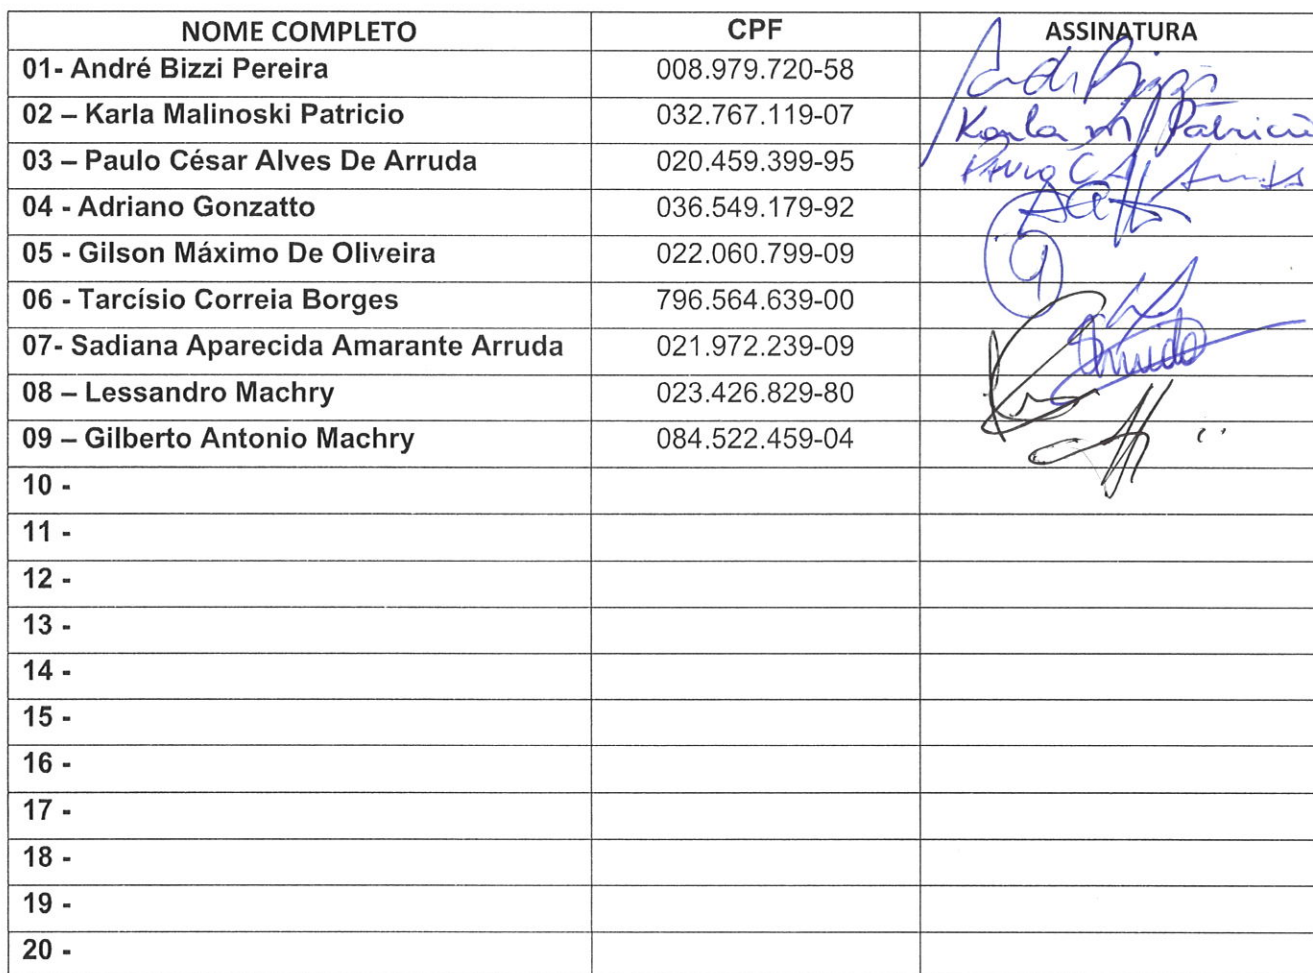 NOME COMPLETO CPF ASSINATURA
01- André Bizzi Pereira 008.979.720-58 André Bizzi
02 – Karla Malinoski Patricio 032.767.119-07 Karla M Patricio
03 – Paulo César Alves De Arruda 020.459.399-95 PAULO C A Arruda
04 - Adriano Gonzatto 036.549.179-92
05 - Gilson Máximo De Oliveira 022.060.799-09
06 - Tarcísio Correia Borges 796.564.639-00
07- Sadiana Aparecida Amarante Arruda 021.972.239-09 Arruda
08 – Lessandro Machry 023.426.829-80
09 – Gilberto Antonio Machry 084.522.459-04
10 -
11 -
12 -
13 -
14 -
15 -
16 -
17 -
18 -
19 -
20 -